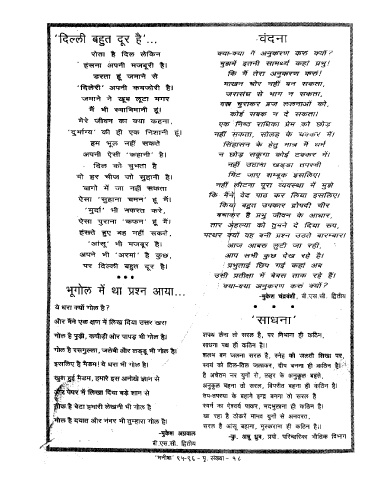 'दिल्ली बहुत दूर है'...
रोता है दिल लेकिन
हंसना अपनी मजबूरी है।
डरता हूं जमाने से
'दिलेरी' अपनी कमजोरी है।
जमाने ने खूब लूटा मगर
मैं भी स्वाभिमानी हूं।
मेरे जीवन का क्या कहना,
'दुर्भाग्य' की ही एक निशानी हूं।
हम भूल नहीं सकते
अपनी ऐसी 'कहानी' है।
दिल को चुभता है
वो हर चीज जो सुहानी है।
बागों में जा नहीं सकता
ऐसा 'सुहाना चमन' हूं मैं।
'मुर्दा' भी नफरत करे,
ऐसा पुराना 'कफन' हूं मैं।
हंसते हुए बह नहीं सकते,
'आंसू' भी मजबूर है।
अपने भी 'अरमां' है कुछ,
पर दिल्ली बहुत दूर है।
भूगोल में था प्रश्न आया...
ये धरा क्यों गोल है?
और मैंने एक क्षण में लिख दिया उत्तर खरा
गोल है पूड़ी, कचौड़ी और पापड़ भी गोल है।
गोल है रसगुल्ला, जलेबी और लड्डू भी गोल है।
इसलिए है मैडम। ये धरा भी गोल है।
खुश हुई मैडम, हमारे इस अनोखे ज्ञान से
और पेपर में लिखा दिया बड़े शान से
ठीक है बेटा हमारी लेखनी भी गोल है
गोल है दवात और नंबर भी तुम्हारा गोल है।
-मुकेश अग्रवाल
बी.एस.सी. द्वितीय
वंदना
क्या-क्या मैं अनुकरण करु क्यों?
मुझमें इतनी सामर्थ्य कहां प्रभु।
कि मैं तेरा अनुकरण करूं।
माखन चोर नहीं बन सकता,
जरासंध से भाग न सकता,
वस्त्र चुराकर ब्रज ललनाओं को,
कोई सबक न दे सकता।
एक निष्ठ राधिका प्रेम को छोड़
नहीं सकता, सोलह के चक्कर में।
सिंहासन के हेतु मात्र में धर्म
न छोड़ सकूंगा कोई टक्कर में।
नहीं उठाना खड़ग तपस्वी
मिट जाए सम्बूक इसलिए।
नहीं लौटना पूरा व्यवस्था में मुझे
कि मैंने वेद पाठ कर लिया इसलिए।
किया बहुत उपकार द्रोपदी चीर
बचाकर है प्रभु जीवन के आधार,
तार अहल्या को तुमने दे दिया रूप,
पत्थर क्यों यह बनी प्रश्न उठते बारम्बार।
आज आबरु लुटी जा रही,
आप सभी कुछ देख रहे है।
प्रभुताई छिप गई कहां अब
उसी प्रतीक्षा में बेबस ताक रहे हैं।
क्या-क्या अनुकरण करूं क्यों?
-मुकेश चंद्रवंशी, बी.एस.सी. द्वितीय
'साधना'
शपथ लेना तो सरल है, पर निभाना ही कठिन,
साधना पथ ही कठिन है।
शलभ बन जलना सरल है, स्नेह की जलती शिखा पर,
स्वयं को तिल-तिल जलाकर, दीप बनना ही कठिन है।
है अचेतन पर युगों से, लहर के अनुकूल बहते,
अनुकूल बहना तो सरल, विपरीत बहना ही कठिन है।
तप-तपस्या के बहाने इन्द्र बनना तो सरल है
स्वर्ग का ऐश्वर्य पाकर, मदभूलना ही कठिन है।
खा रहा है ठोकरें मानव युगों से अनवरत,
सरल है आंसू बहाना, मुस्कराना ही कठिन है।।
-कु. अन्नु ध्रुव, प्रयो. परिचारिका भौतिक विभाग
'मनीषा' ९५-९६ - पृ. संख्या - १८